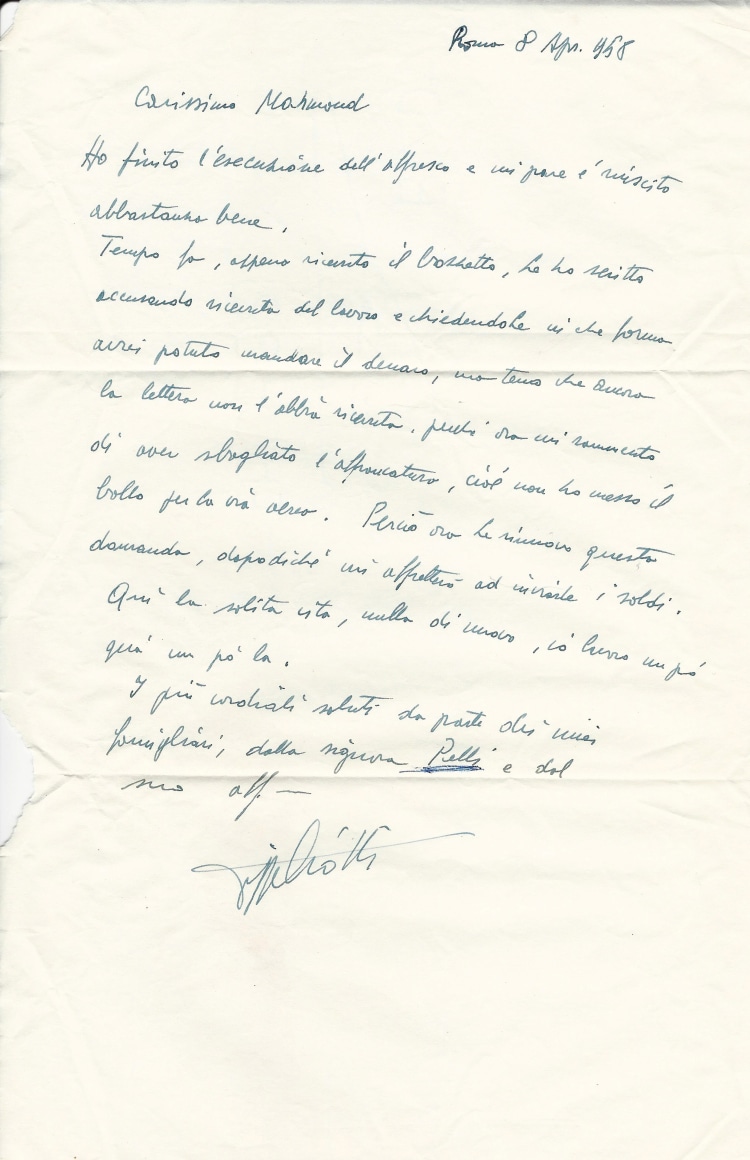 Roma 8 Apr. 1958
Carissimo Mahmoud
Ho finito l'esecuzione dell'affresco e mi pare è riuscito
abbastanza bene.
Tempo fa, appena ricevuto il bozzetto, Le ho scritto
accusando ricevuta del lavoro e chiedendole in che forma
avrei potuto mandare il denaro, ma temo che ancora
la lettera non l'abbia ricevuta, perché ora mi rammento
di aver sbagliato l'affrancatura, cioè non ho messo il
bollo per la via aerea. Perciò ora Le rinnovo questa
domanda, dopodiché mi affretterò ad inviarle i soldi.
Qui la solita vita, nulla di nuovo, io lavoro un pó
quà un pó la.
I più cordiali saluti da parte dei miei
famigliari, dalla signora Pelli e dal
suo aff.